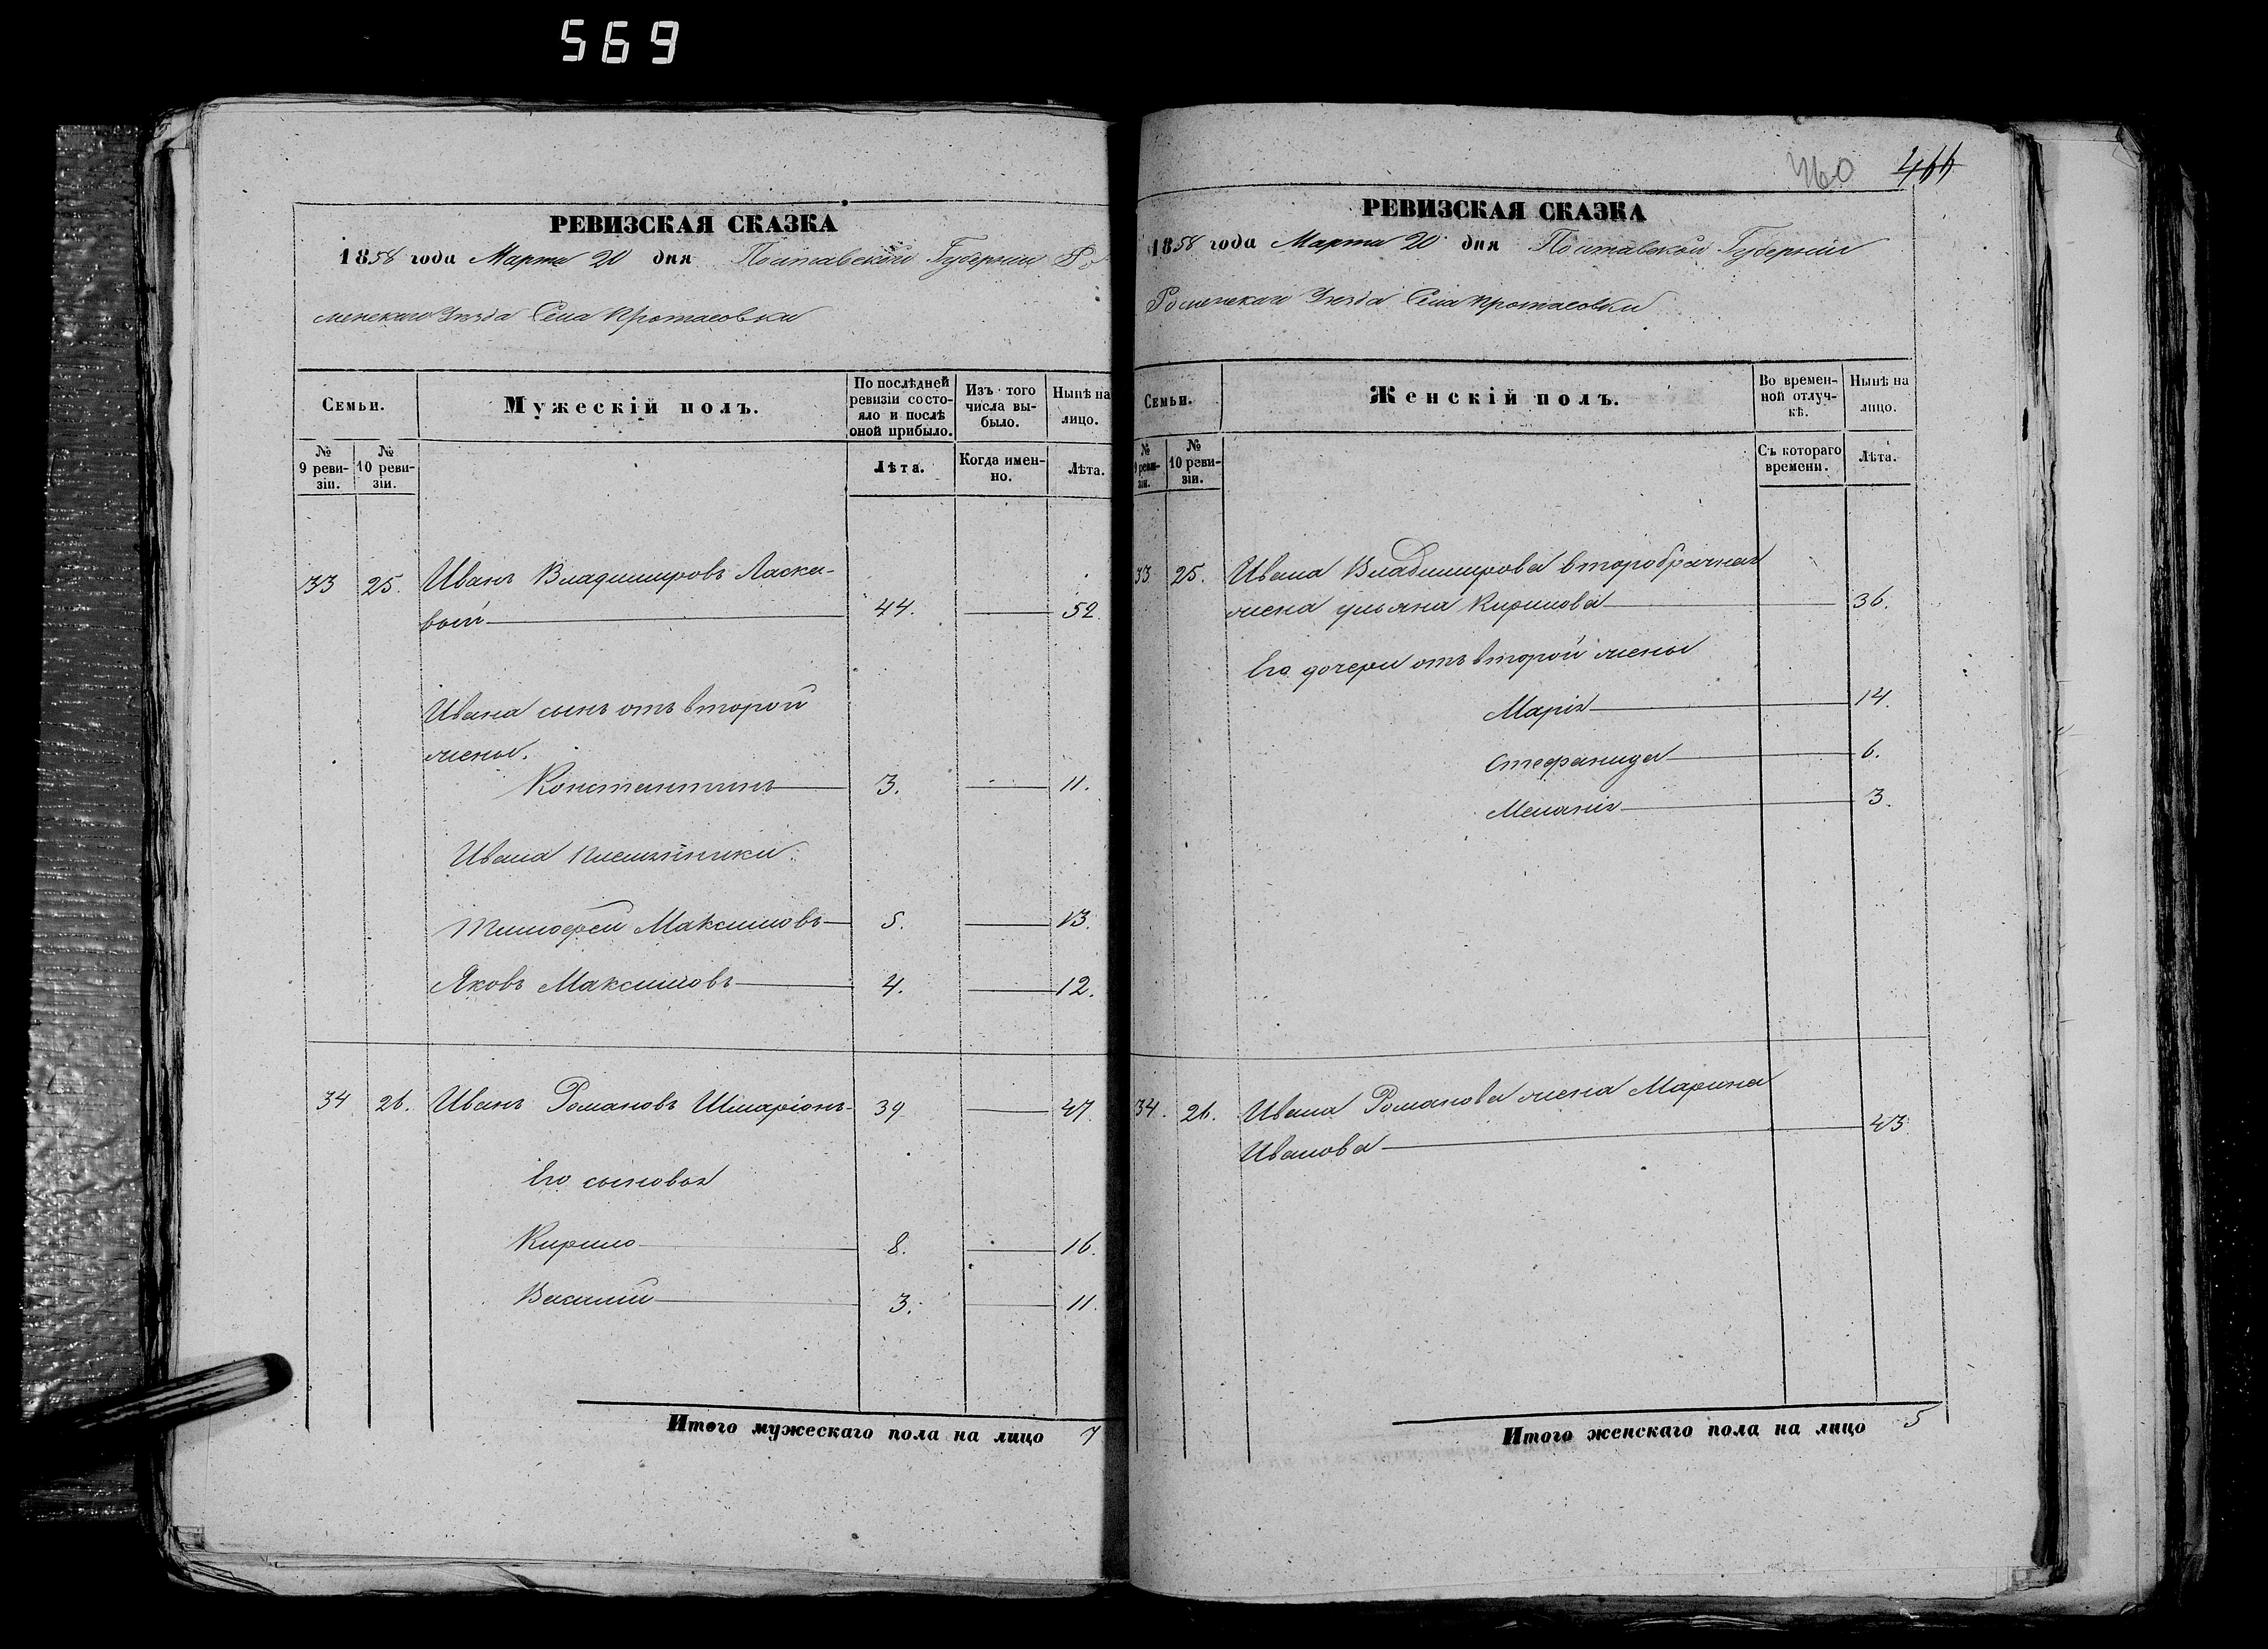 569
РЕВИЗСКАЯ СКАЗКА
1858 года Марта 20 дня Полтавской Губерніи Ро-
менскаго Уезда Села Протасовки
Семьи.
Мужескій полъ.
По послѣдней ревизіи состояло и послѣ оной прибыло.
Изъ того числа выбыло.
Нынѣ на лицо.
№ 9 ревизіи.
№ 10 ревизіи.
Лѣта.
Когда именно.
Лѣта.
33 25. Иванъ Владимировъ Ласка-
вый 44. 52.
Ивана сынъ отъ второй
жены.
Константинъ 3. 11.
Ивана племянники:
Тимофей Максимовъ 5. 13.
Яковъ Максимовъ 4. 12.
34 26. Иванъ Романовъ Шларіонъ 39 47
Его сыновья
Кирило 8. 16.
Василій 3. 11.
Итого мужескаго пола на лицо 7
460 466
РЕВИЗСКАЯ СКАЗКА
1858 года Марта 20 дня Полтавской Губерніи
Роменскаго Уезда Села Протасовки
Семьи.
Женскій полъ.
Во временной отлучкѣ.
Нынѣ на лицо.
№ 9 ревизіи.
№ 10 ревизіи.
Съ котораго времени.
Лѣта.
33 25. Ивана Владимирова второбрачная
жена Ульяна Кирилова 36.
Его дочери отъ второй жены
Марія 14.
Стефанида 6.
Меланія 3.
34. 26. Ивана Романова жена Марина
Иванова 43
Итого женскаго пола на лицо 5